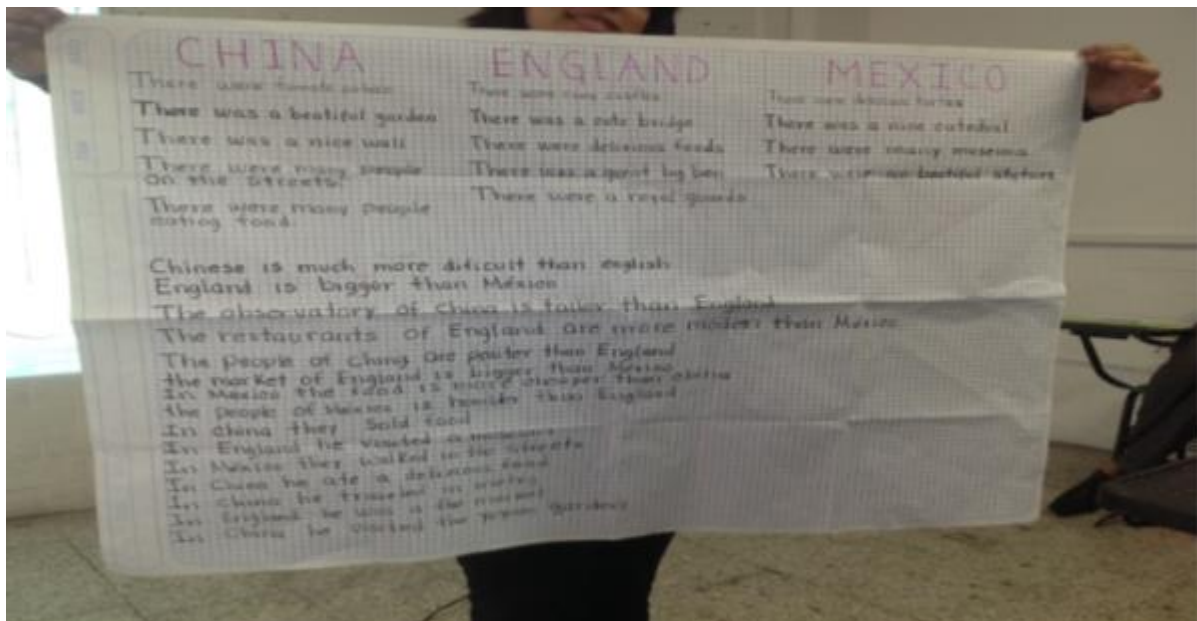 CHINA
There were
There was a beatiful garden
There was a nice wall
There were many people
on the streets.
There were many people
eating food.
ENGLAND
There were
There was a cute bridge
There were delicious foods
There was a great big ben
There were a royal guards
MEXICO
There were delicious
There was a nice catedral
There were many museums
There were
Chinese is much more dificult than english
England is bigger than Mexico
The observatory of China is taller than England
The restaurants of England are more modern than Mexico
The people of China are than England
the market of England is bigger than Mexico
In Mexico the food is more cheaper than china
the people of Mexico is than England
In china they sold food
In England he visited a
In Mexico they walked in the streets
In China he ate a delicious food
In china he traveled in
In England he was in the
In China he visited the gardens